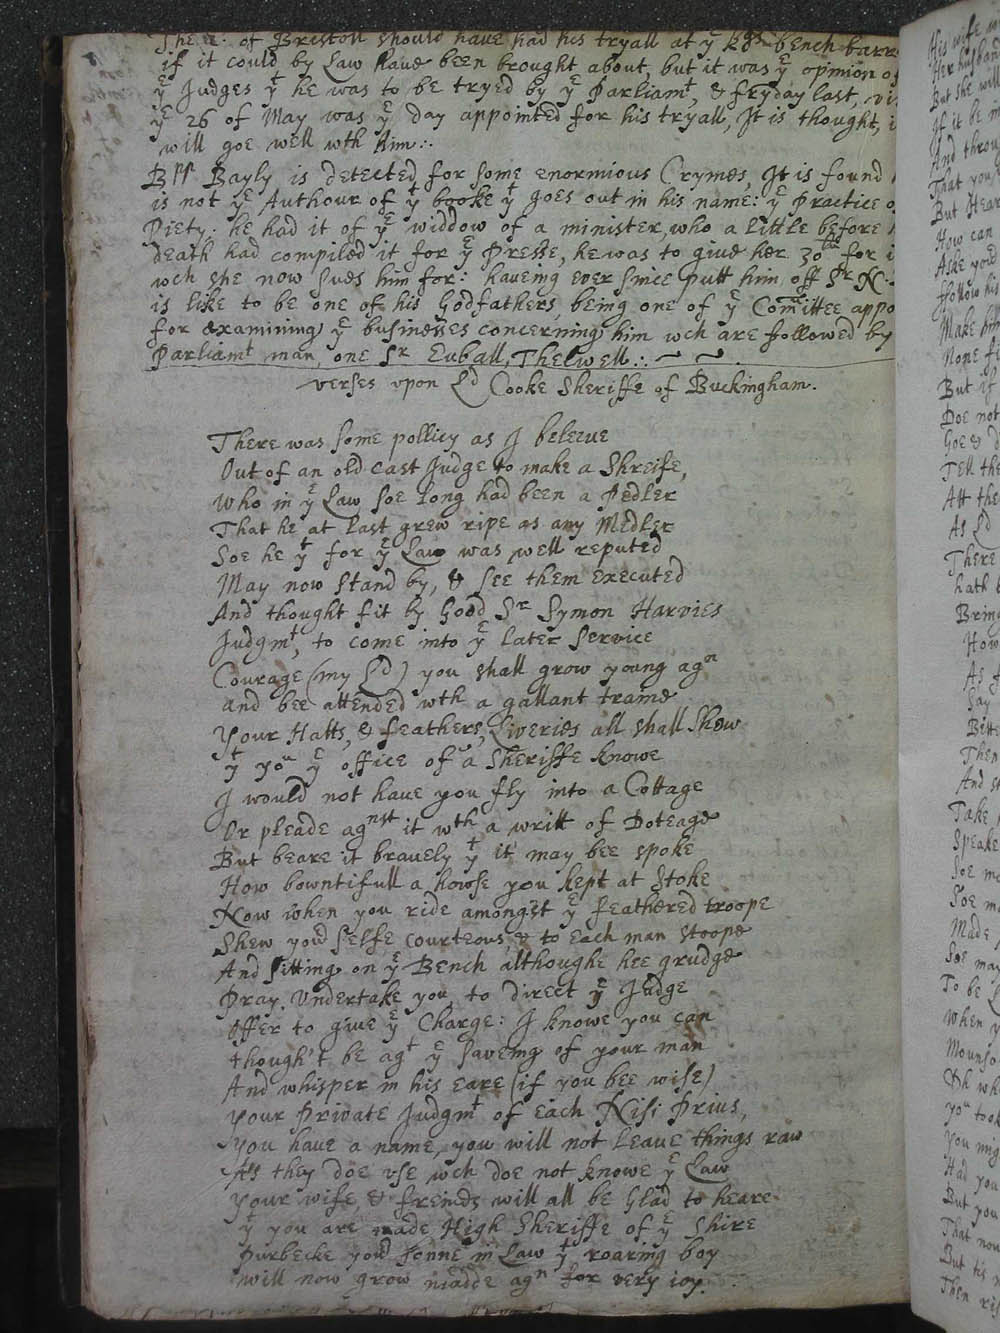 The E: of Bristoll should have had his tryall at ye Kgs bench barre
if it could by Law have been brought about, but it was ye opinion of
ye Judges yt he was to be tryed by ye Parliamt, & fryday last,
ye 26 of May was ye day appointed for his tryall, It is thought,
will goe well wth him:.
Bpp Bayly is detected for some enormious Crymes, It is found
is not ye Authour of yt booke yt goes out in his name: ye Practice of
Piety: he had it of ye widdow of a minister, who a little before
death had compiled it for ye Presse, he was to give her 30 for
wch she now sues him for: haveing ever since putt him off Sr N:
is like to be one of his Godfathers, being one of ye Comittee
for examining ye businesses concerning him wch are followed by
Parliamt man, one Sr Euball, Thelwell:. ~ ~
verses vpon Ld Cooke Sheriffe of Buckingham.
There was some pollicy as I beleeue
Out of an old cast Judge to make a Shreife,
Who in ye Law soe long had been a Pedler
That he at last grew ripe as any Medler
Soe he yt for ye Law was well reputed
May now stand by, & see them executed
And thought fit by Good Sr Symon Harvies
Judgmt, to come into ye later service
Courage (my Ld) you shall grow young agn
and bee attended wth a gallant traine
Your Hatts, & feathers, Liveries all shall Shew
yt you ye office of a Sheriffe knowe
I would not have you fly into a Cottage
Or pleade agnst it wth a writt of Doteage
But beare it bravely yt it may bee spoke
How bowntifull a howse you kept at Stoke
Now when you ride amongst ye feathered troope
Shew your selfe courteous & to each man stoope
And sitting on ye Bench althoughe hee grudge
Pray Vndertake you to direct ye Judge
Offer to give ye Charge: I knowe you can
though't be agt ye saveing of your man
And whisper in his eare (if you bee wise)
Your Private Judgmt of each Nisi Prius,
You have a name, you will not leave things raw
As they doe vse wch doe not knowe ye Law
Your wife, & freinds will all be glad to heare
yt you are made High Sheriffe of ye Shire
Purbecke your sonne in Law yt roaring boy
will now grow madde agn for very ioy.
His wife
Her husband
But she will
If it be
And throu
That
But Hear
How can
Aske your
ffollow his
Make him
None
But if
Doe not
Goe &
Tell the
Att the
As Ld
There
hath
Bring
How
As
Say
Bitte
Then
And
Take
Speake
Soe
Soe
Made
Soe may
To be
When
Mounso
Oh wh
You took
You mig
Had you
But you
That now
But tis
Then